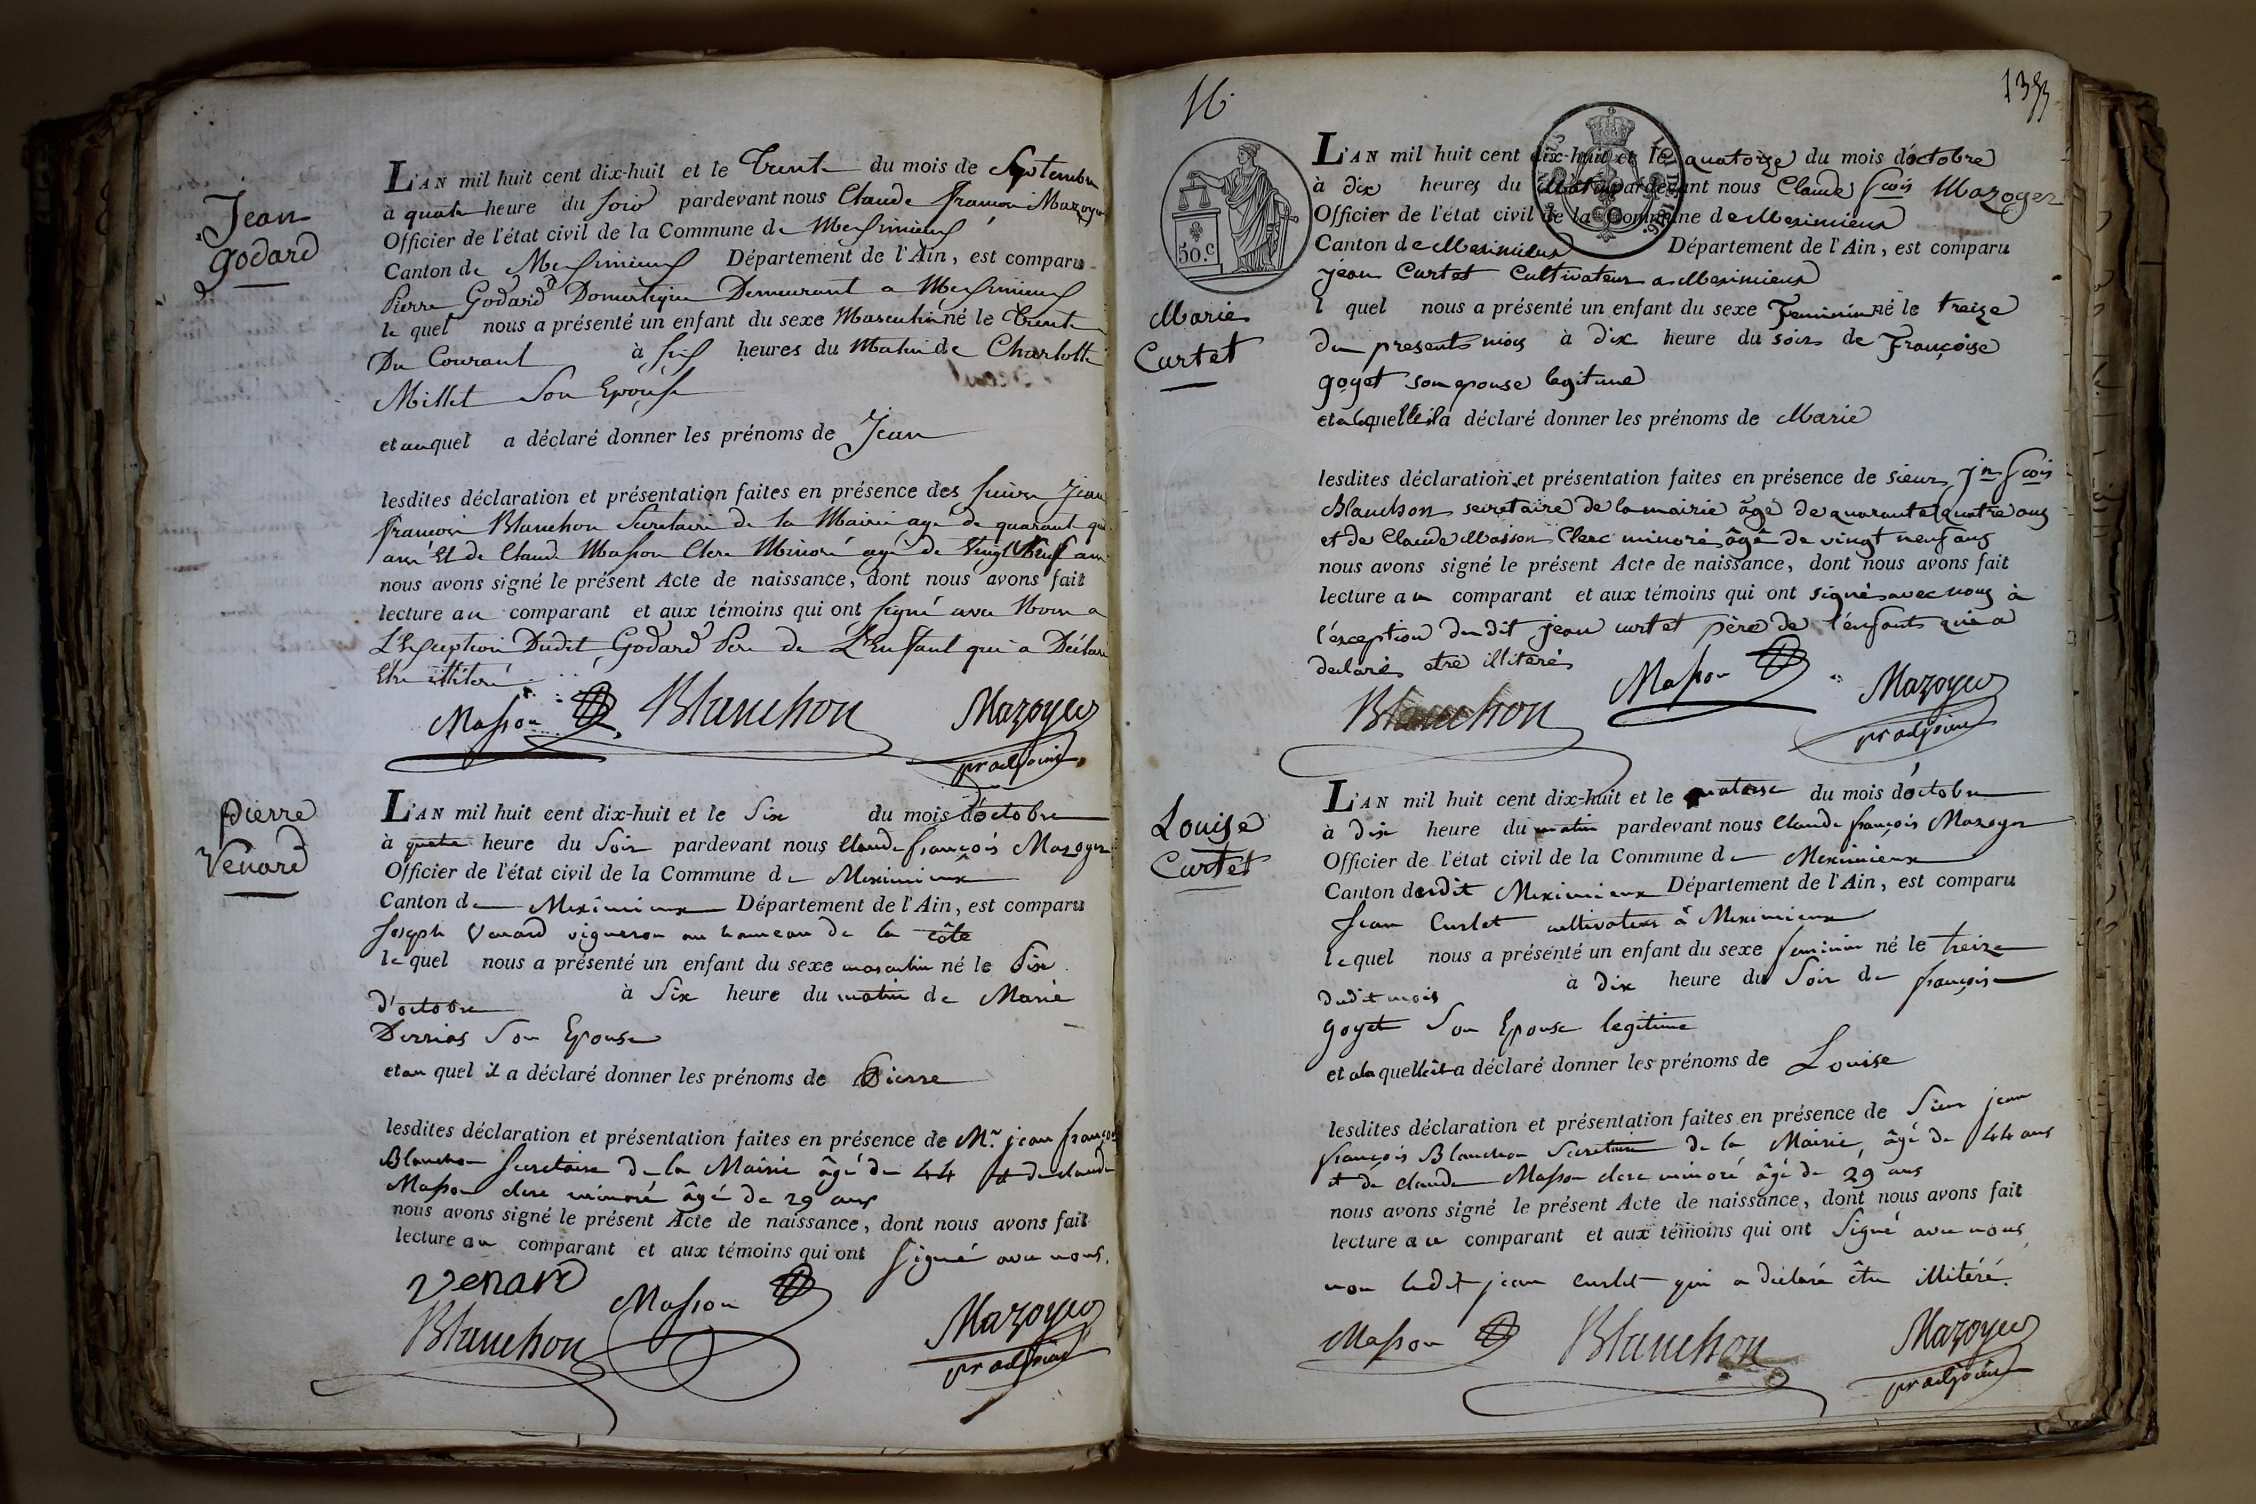 Jean
Godard
L'AN mil huit cent dix-huit et le Trente du mois de Septembre
à quatre heure du soir pardevant nous Claude françois Mazoyer
Officier de l'état civil de la Commune de Meximieux
Canton de Meximieux Département de l'Ain, est comparu
Pierre Godard Domestique Demeurant a Meximieux
le quel nous a présenté un enfant du sexe Masculin né le Trente
Du Courant à six heures du Matin de Charlotte
Millet Son Epouse
et au quel a déclaré donner les prénoms de Jean
lesdites déclaration et présentation faites en présence des sieurs Jean
francois Blanchon Secretaire de la Mairie agé de quarante
ans Et de Claude Masson Clerc Minoré agé de Vingt Neuf ans
nous avons signé le présent Acte de naissance, dont nous avons fait
lecture au comparant et aux témoins qui ont signé avec Nous a
L'Exception Dudit Godard Pere de L'Enfant qui a Déclaré
Etre illiteré
Masson Blanchon Mazoyer
pr adjoint
Pierre
Venard
L'AN mil huit cent dix-huit et le Six du mois d'octobre
à quatre heure du Soir pardevant nous Claude françois Mazoyer
Officier de l'état civil de la Commune de Meximieux
Canton de Meximieux Département de l'Ain, est comparu
Joseph Venard vigneron au hameau de la côte
le quel nous a présenté un enfant du sexe masculin né le Six
d'octobre à Six heure du matin de Marie
Derrias Son Epouse
et au quel il a déclaré donner les prénoms de Pierre
lesdites déclaration et présentation faites en présence de Mr. jean françois
Blanchon Secretaire de la Mairie âgé de 44 et de claude
Masson clerc minoré âgé de 29 ans
nous avons signé le présent Acte de naissance, dont nous avons fait
lecture au comparant et aux témoins qui ont signé avec nous.
venard
Blanchon Masson Mazoyer
pr adjoint
16.
133
50.c
Marie
Curtet
L'AN mil huit cent dix-huit et le quatorze du mois d'octobre
à dix heures du Matin pardevant nous Claude fcois Mazoyer
Officier de l'état civil de la Commune de Meximieux
Canton de Meximieux Département de l'Ain, est comparu
jean Curtet Cultivateur a Meximieux
l quel nous a présenté un enfant du sexe Feminin né le treize
du presents mois à dix heure du soir de Françoise
goyet son epouse legitime
et a laquelle il a déclaré donner les prénoms de Marie
lesdites déclaration et présentation faites en présence de sieurs jn fcois
Blanchon secretaire de la mairie âgé de quarante quatre ans
et de Claude Masson Clerc minoré âgé de vingt neuf ans
nous avons signé le présent Acte de naissance, dont nous avons fait
lecture au comparant et aux témoins qui ont signés avec nous à
l'exception du dit jean curtet père de l'enfant qui a
declaré etre illiteré
Blanchon Masson Mazoyer
pr adjoint
Louise
Curtet
L'AN mil huit cent dix-huit et le quatorse du mois d'octobre
à dix heure du matin pardevant nous Claude françois Mazoyer
Officier de l'état civil de la Commune de Meximieux
Canton dudit Meximieux Département de l'Ain, est comparu
Jean Curtet cultivateur à Meximieux
le quel nous a présenté un enfant du sexe feminin né le treize
dudit mois à dix heure du Soir de françoise
goyet Son Epouse legitime
et a la quelle il a déclaré donner les prénoms de Louise
lesdites déclaration et présentation faites en présence de Sieur jean
françois Blanchon Secretaire de la Mairie, âgé de 44 ans
et de claude Masson clerc minoré âgé de 29 ans
nous avons signé le présent Acte de naissance, dont nous avons fait
lecture au comparant et aux témoins qui ont Signé avec nous
non ledit jean curtet qui a déclaré être illitéré.
Masson Blanchon Mazoyer
pr adjoint